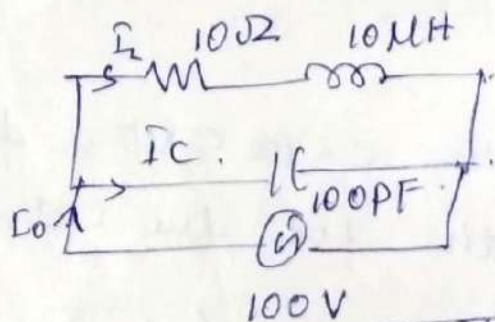 I_L 10Ω 10μH
IC.
I0 100PF.
100 V